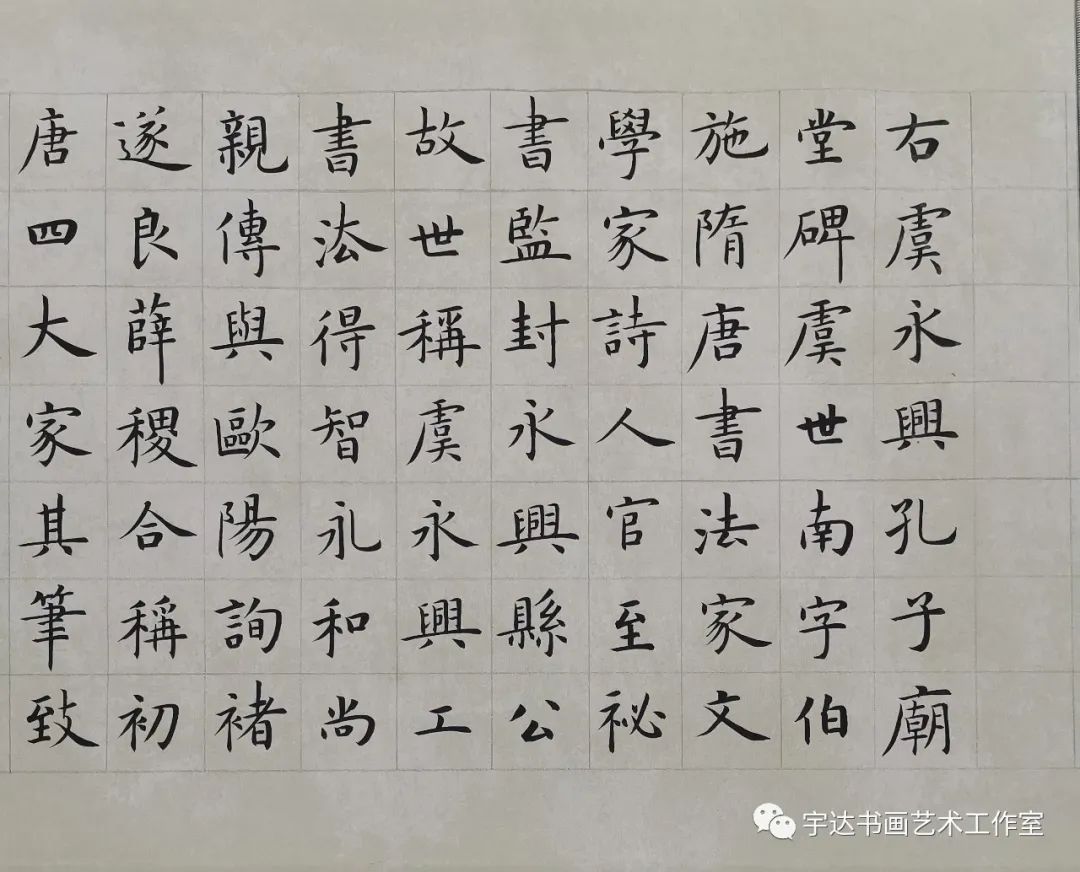 右虞永興孔子廟
堂碑虞世南字伯
施隋唐書法家文
學家詩人官至祕
書監封永興縣公
故世稱虞永興工
書法得智永和尚
親傳與歐陽詢褚
遂良薛稷合稱初
唐四大家其筆致
宇达书画艺术工作室